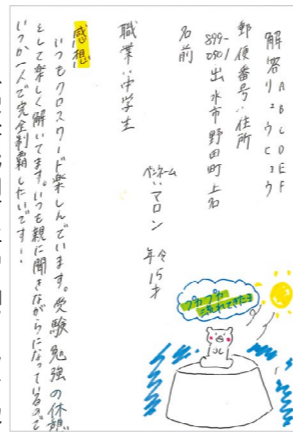 解答 ABCDEF
リュウヒョウ
郵便番号・住所
899-0501 出水市野田町上名
名前
ペンネーム マロン 年令 15才
職業:中学生
感想
いつもクロスワード楽しんでいます。受験勉強の休憩
として楽しく解いてます。いつも親に聞きながらになっているので
いつか一人で完全制覇したいです!
プカプカ
流れてきたよ